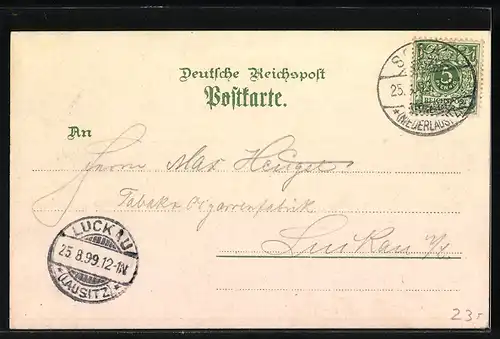 Deutsche Reichspost
Postkarte.
5
25.
*(NIEDERLAUSITZ)*
An
Herrn Max
Tabak Cigarrenfabrik
Luckau
LUCKAU
25.8.99.12-1N
*(LAUSITZ)*
23